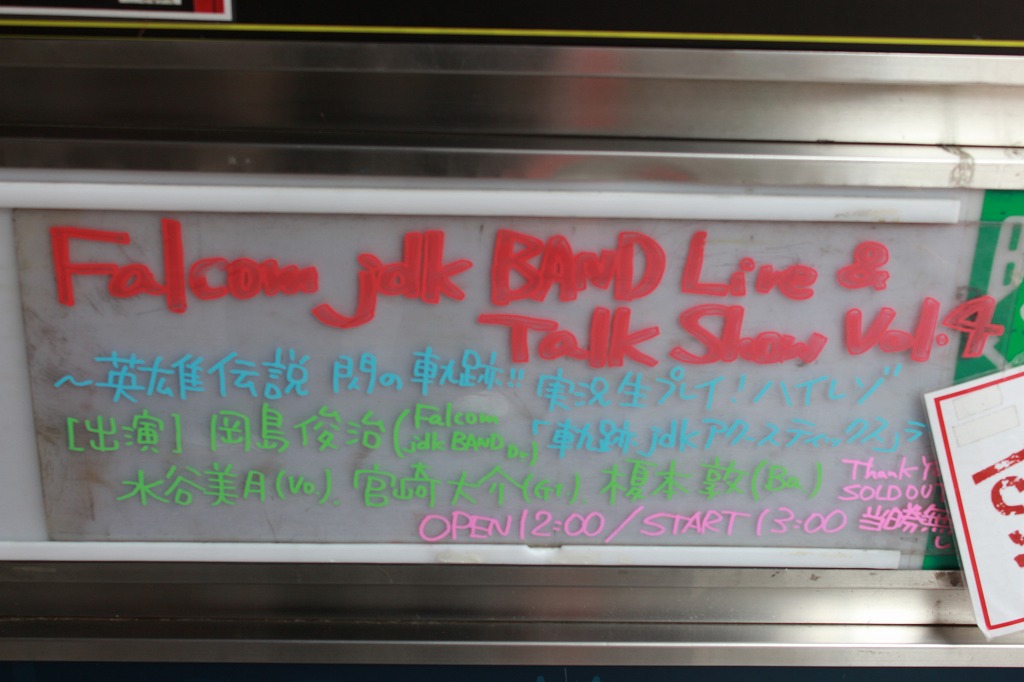 Falcom jdk BAND Live &
Talk Show Vol.4
～英雄伝説 閃の軌跡!! 実況生プレイ!ハイレゾ
「軌跡jdkアクースティックス」ラ
[出演] 岡島俊治(Falcom jdk BAND Dr)
水谷美月(Vo) 宮崎大介(Gt) 榎本敦(Ba)
Thank Y
SOLD OUT
OPEN 12:00 / START 13:00 当日券無
し